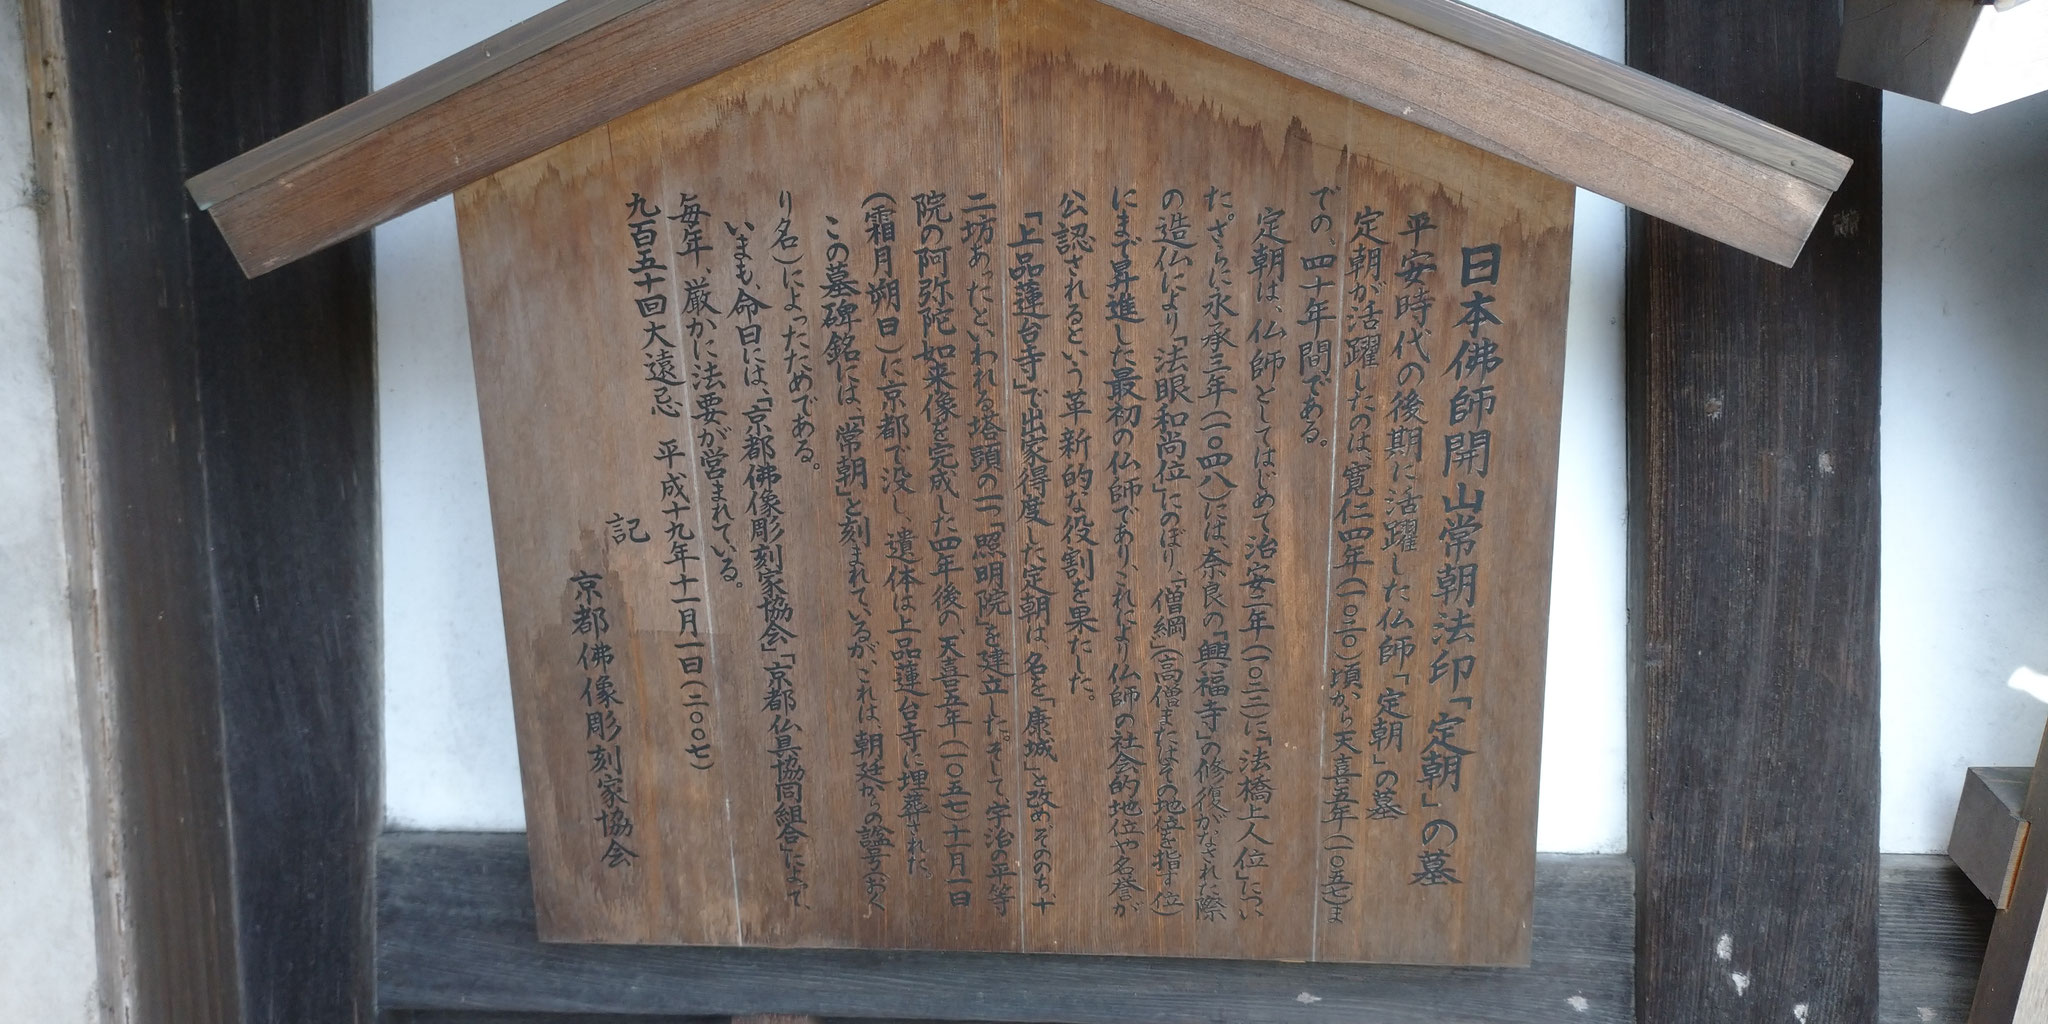 日本佛師開山常朝法印「定朝」の墓
平安時代の後期に活躍した仏師「定朝」の墓
定朝が活躍したのは寛仁四年(一〇二〇)頃から天喜五年(一〇五七)ま
での、四十年間である。
定朝は、仏師としてはじめて治安二年(一〇二二)に「法橋上人位」につい
た。さらに永承三年(一〇四八)には、奈良の「興福寺」の修復がなされた際
の造仏により「法眼和尚位」にのぼり、「僧綱」(高僧またはその地位を指す位)
にまで昇進した最初の仏師であり、これにより仏師の社会的地位や名誉が
公認されるという革新的な役割を果たした。
「上品蓮台寺」で出家得度した定朝は、名を「康城」と改め、そののち、十
二坊あったといわれる塔頭の一つ「照明院」を建立した。そして、宇治の平等
院の阿弥陀如来像を完成した四年後の、天喜五年(一〇五七)十一月一日
(霜月朔日)に京都で没し、遺体は上品蓮台寺に埋葬された。
この墓碑銘には、「常朝」と刻まれているが、これは、朝廷からの諡号(おく
り名)によったためである。
いまも、命日には、「京都佛像彫刻家協会」「京都仏具協同組合」によって、
毎年、厳かに法要が営まれている。
九百五十回大遠忌 平成十九年十一月一日(二〇〇七)
記
京都佛像彫刻家協会